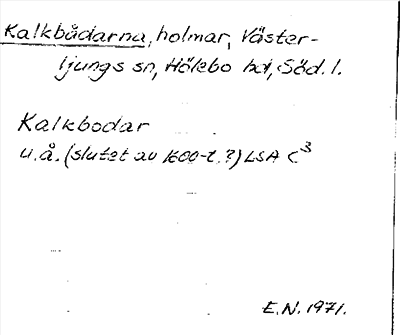 Kalkbådarna, holmar, Väster-
ljungs sn, Hölebo hd, Söd. l.
Kalkbodar
u.å. (slutet av 1600-t.?) LSA C³
E.N. 1971.